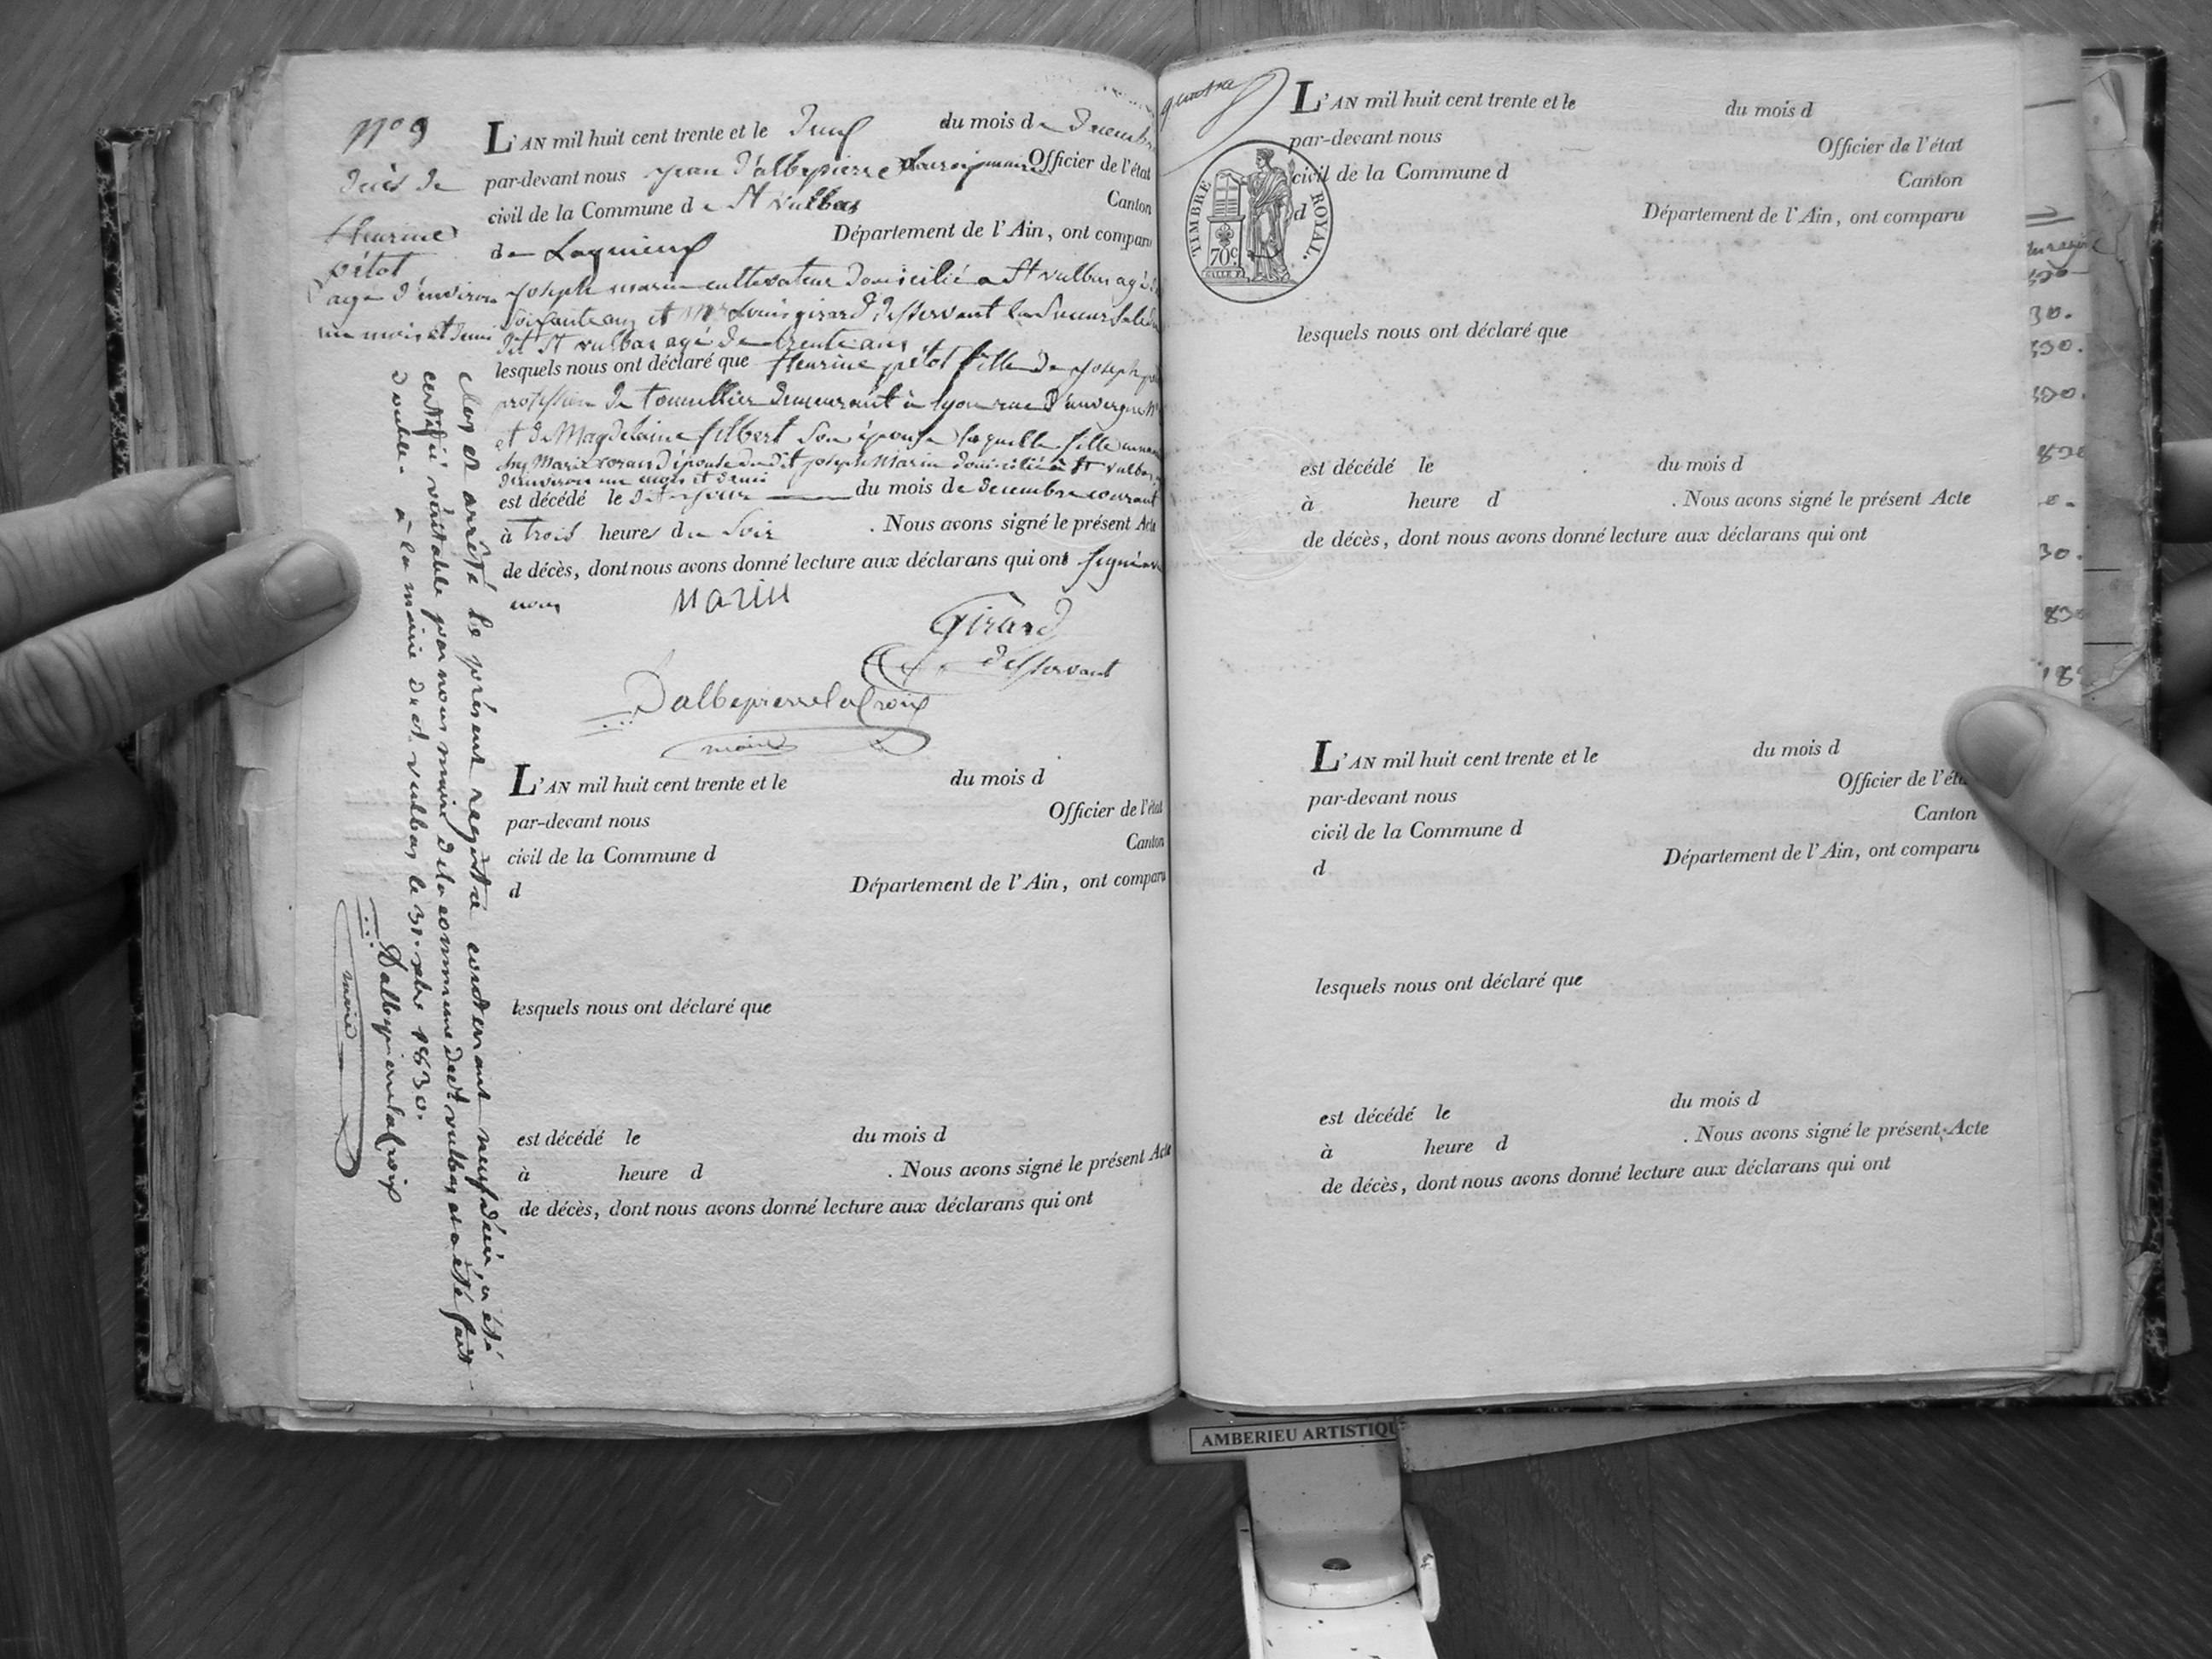 N° 9
décès de
fleurine
pétot
agé d'environ
un mois et demi
L'AN mil huit cent trente et le deux du mois de Decembre
par-devant nous jean Dalbepierre lacroix maire Officier de l'état
civil de la Commune de St vulbas Canton
de Lagnieux Département de l'Ain, ont comparu
joseph marin cultivateur domicilié a St vulbas agé de
soixante ans et Mr Louis girard desservant la succursale
dit St vulbas agé de trente ans
lesquels nous ont déclaré que fleurine pétot fille de joseph
profession de tonnellier demeurant à lyon rue d'auvergne N°
et de Magdelaine filbert son épouse laquelle fille
chez Marie épouse dudit joseph Marin domicilié à St vulbas
d'environ un mois et demi
est décédé le dit jour du mois de decembre courant
à trois heures du soir . Nous avons signé le présent Acte
de décès, dont nous avons donné lecture aux déclarans qui ont signé avec
nous
Marin
Girard
desservant
Dalbepierre lacroix
maire
Clos et arrêté le présent registre contenant neuf décès, a été
certifié véritable par nous maire de la commune de St vulbas et a été fait
double à la mairie de St vulbas le 31 xbre 1830.
Dalbepierre lacroix
maire
L'AN mil huit cent trente et le du mois d
par-devant nous Officier de l'état
civil de la Commune d Canton
d Département de l'Ain, ont comparu
lesquels nous ont déclaré que
est décédé le du mois d
à heure d . Nous avons signé le présent Acte
de décès, dont nous avons donné lecture aux déclarans qui ont
quatre
TIMBRE ROYAL.
70c.
L'AN mil huit cent trente et le du mois d
par-devant nous Officier de l'état
civil de la Commune d Canton
d Département de l'Ain, ont comparu
lesquels nous ont déclaré que
est décédé le du mois d
à heure d . Nous avons signé le présent Acte
de décès, dont nous avons donné lecture aux déclarans qui ont
L'AN mil huit cent trente et le du mois d
par-devant nous Officier de l'état
civil de la Commune d Canton
d Département de l'Ain, ont comparu
lesquels nous ont déclaré que
est décédé le du mois d
à heure d . Nous avons signé le présent Acte
de décès, dont nous avons donné lecture aux déclarans qui ont
30.
30.
AMBERIEU ARTISTIQU